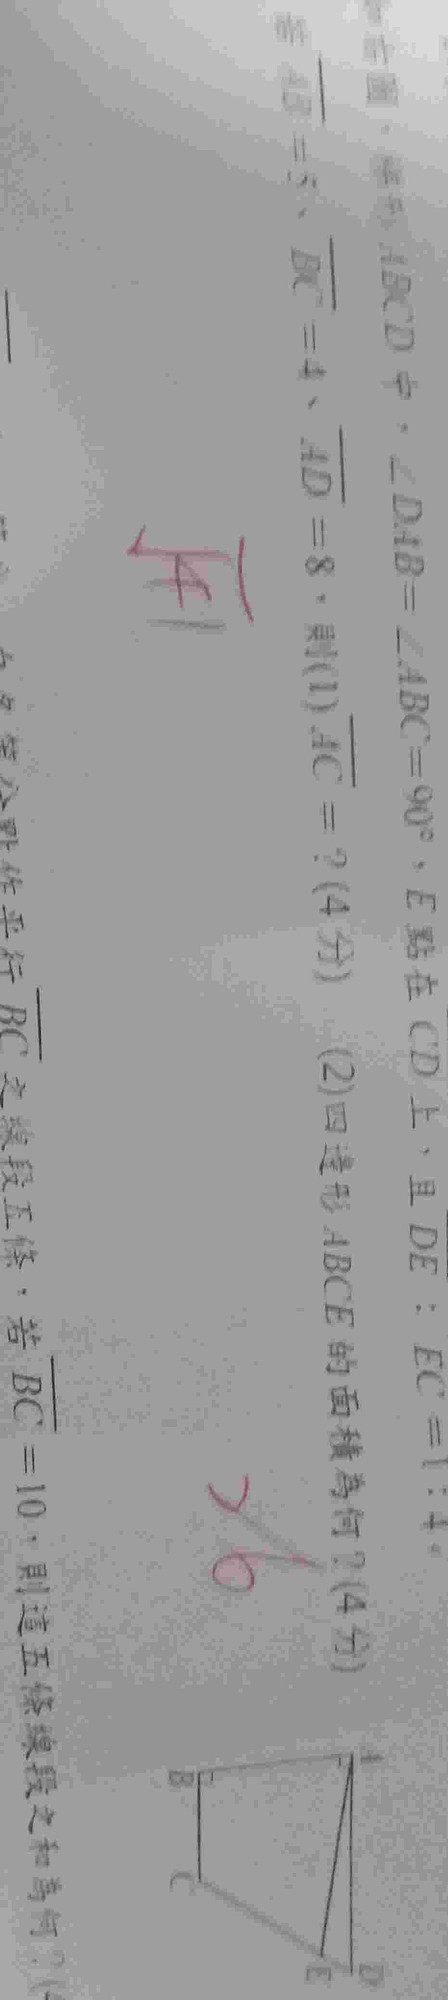 右圖,梯形ABCD中,∠DAB=∠ABC=90°、E點在CD上,且DE:EC=1:4。
若AB=5、BC=4、AD=8,則(1)AC=?(4分) (2)四邊形ABCE的面積為何?(4分)
√41
26
A
D
E
B
C
等分點作平行BC之線段五條,若BC=10,則這五條線段之和為何?(4